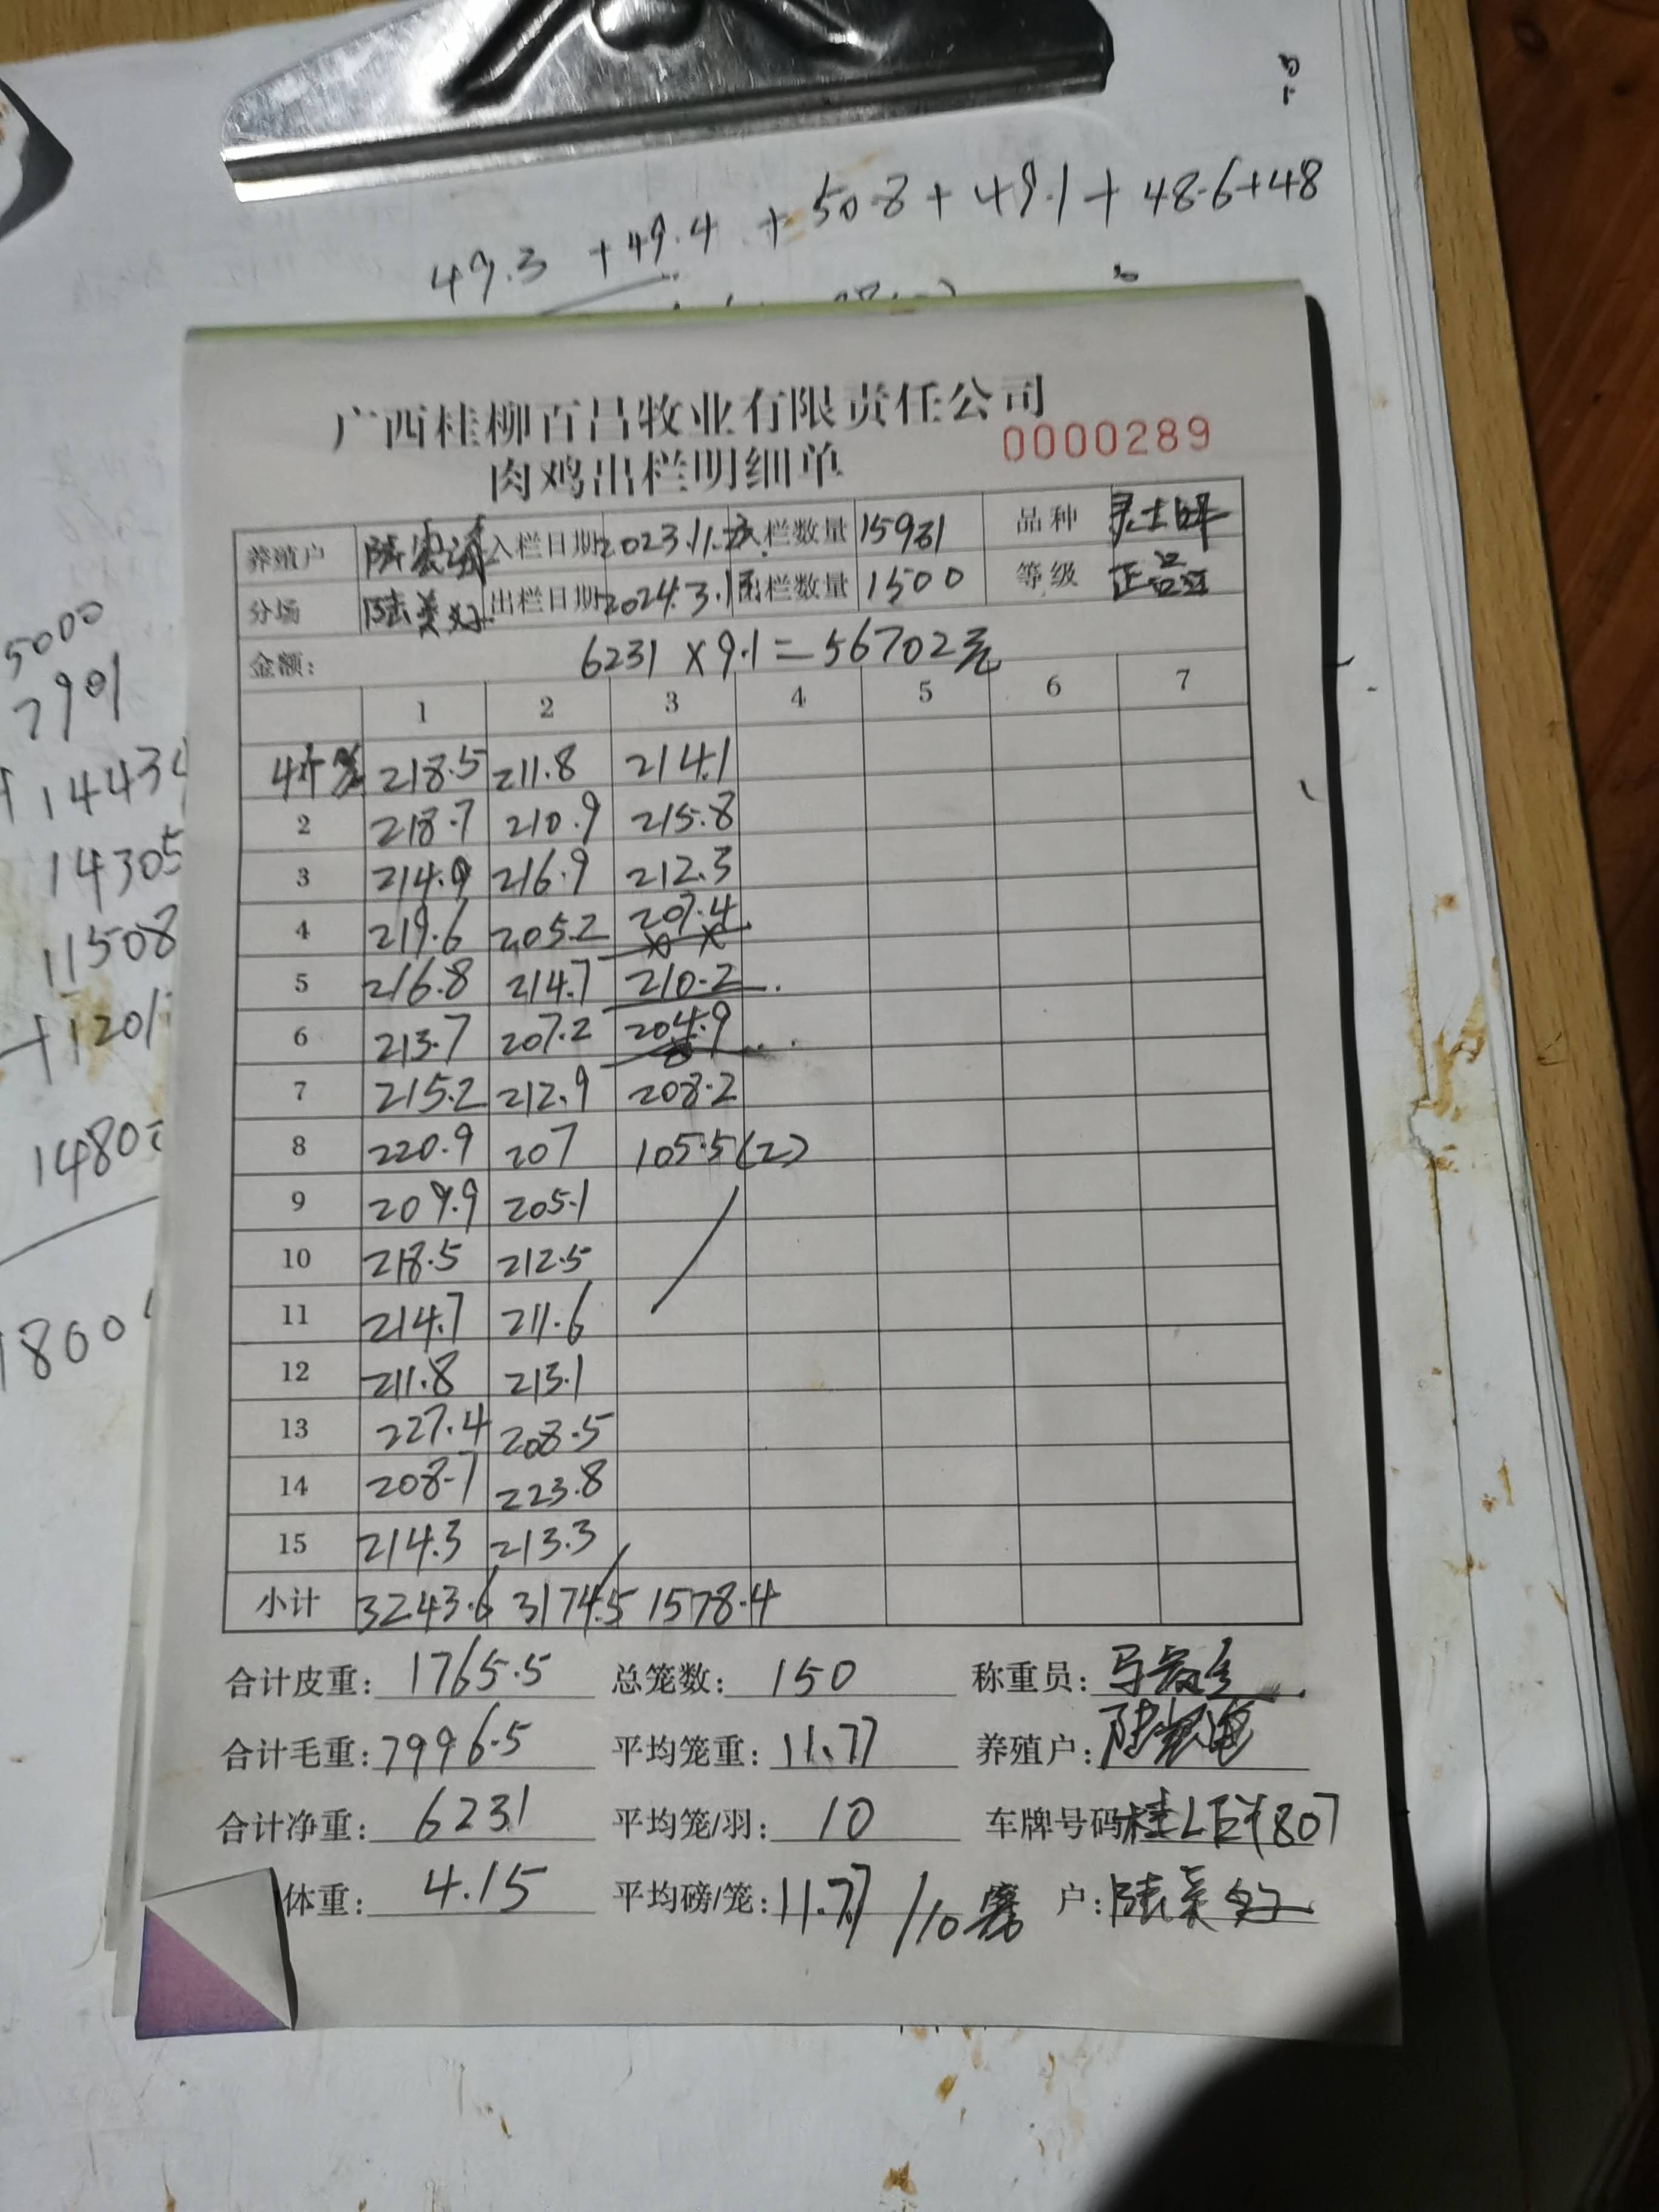 49.3 +49.4 +50.8+49.1+48.6+48
广西桂柳百昌牧业有限责任公司
0000289
肉鸡出栏明细单
养殖户 入栏日期 2023.11. 入栏数量 15931 品种 灵土
分场 陆美好 出栏日期 2024.3.1 出栏数量 1500 等级 正品
金额: 6231 ×9.1=56702元
1 2 3 4 5 6 7
4个笼 218.5 211.8 214.1
2 218.7 210.9 215.8
3 214.9 216.9 212.3
4 219.6 205.2 207.4
5 216.8 214.7 210.2
6 213.7 207.2 204.9
7 215.2 212.9 208.2
8 220.9 207 105.5(2)
9 209.9 205.1
10 218.5 212.5
11 214.7 211.6
12 211.8 213.1
13 227.4 208.5
14 208.7 223.8
15 214.3 213.3
小计 3243.6 3174.5 1578.4
合计皮重: 1765.5 总笼数: 150 称重员:
合计毛重: 7996.5 平均笼重: 11.77 养殖户:
合计净重: 6231 平均笼/羽: 10 车牌号码 桂LEY807
体重: 4.15 平均磅/笼: 11.77 /10 客 户: 陆美好
5000
7901
14434
14305
11508
+1201
1480
1800